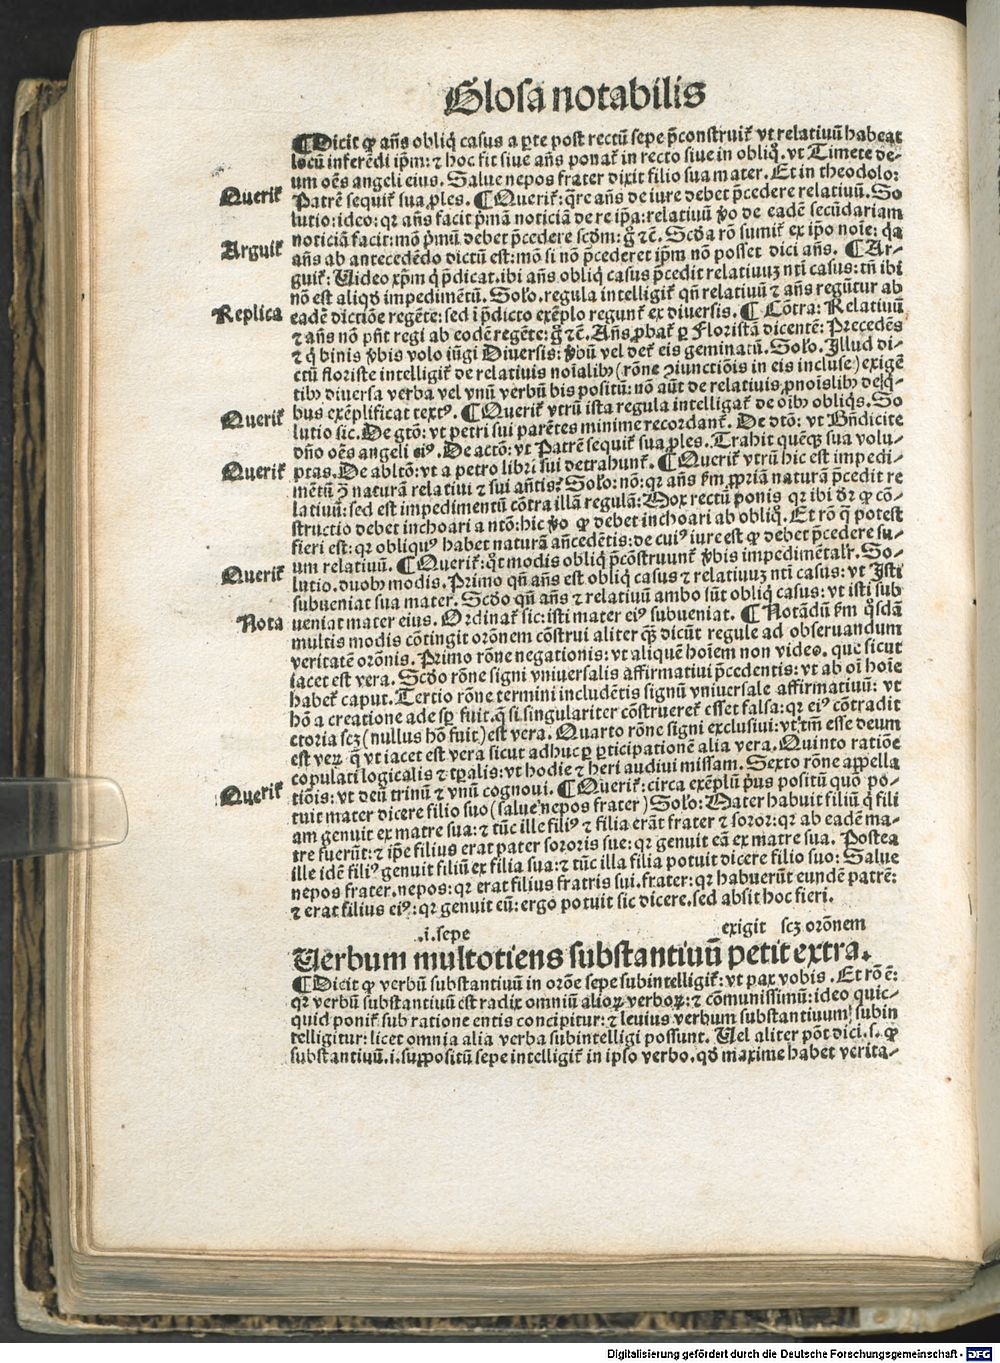 Glosa notabilis
¶Dicit ꝙ añs obliq̃ casus a ꝑte post rectũ sepe p̃construit̃ vt relatiuũ habeat
locũ inferẽdi ip̃m: ⁊ hoc fit siue añs ponat̃ in recto siue in obliq̃. vt Timete de-
um oẽs angeli eius. Salue nepos frater dixit filio sua mater. Et in theodolo:
Querit̃ Patrẽ sequit̃ sua ꝓles. ¶Querit̃: q̃re añs de iure debet p̃cedere relatiuũ. So
lutio: ideo: qꝛ añs facit p̃mã noticiã de re ip̃a: relatiuũ ꝟo de eadẽ secũdariam
noticiã facit: mõ p̃mũ debet p̃cedere scd̃m: g̃ ⁊c̃. Scd̃a rõ sumit̃ ex ip̃o noĩe: q̃a
Arguit̃ añs ab antecedẽdo dictũ est: mõ si nõ p̃cederet ip̃m nõ posset dici añs. ¶Ar-
guit̃: Uideo xp̃m q̃ p̃dicat. ibi añs obliq̃ casus p̃cedit relatiuuꝫ nt̃i casus: tñ ibi
nõ est aliqd̃ impedimẽtũ. Solo. regula intelligit̃ qñ relatiuũ ⁊ añs regũtur ab
Replica eadẽ dictiõe regẽte: sed i p̃dicto exẽplo regunt̃ ex diuersis. ¶Cõtra: Relatiuũ
⁊ añs nõ pñt regi ab eodẽ regẽte: g̃ ⁊c̃. Añs ꝓbat̃ ꝑ Floristã dicentẽ: Precedẽs
⁊ q̃ binis ꝟbis volo iũgi Diuersis: ꝟbũ vel det̃ eis geminatũ. Solo. Illud di-
ctũ floriste intelligit̃ de relatiuis noĩalibꝰ (rõne ↄiunctiõis in eis incluse) exigẽ
tibꝰ diuersa verba vel vnũ verbũ bis positũ: nõ aũt de relatiuis ꝓnoĩalibꝰ de q̃-
Querit̃ bus exẽplificat textꝰ. ¶Querit̃ vtrũ ista regula intelligat̃ de oĩbꝰ obliq̃s. So
lutio sic. De gtõ: vt petri sui parẽtes minime recordant̃. De dtõ: vt Bñdicite
dño oẽs angeli eiꝰ. De actõ: vt Patrẽ sequit̃ sua ꝓles. Trahit quẽqꝫ sua volu-
Querit̃ ptas. De abltõ: vt a petro libri sui detrahunt̃. ¶Querit̃ vtrũ hic est impedi-
mẽtũ ↄ̃ naturã relatiui ⁊ sui añtis? Solo: nõ: qꝛ añs ẜm ꝓpriã naturã p̃cedit re
latiuũ: sed est impedimentũ cõtra illã regulã: Mox rectũ ponis qꝛ ibi dr̃ ꝙ cõ-
structio debet inchoari a ntõ: hic ꝟo ꝙ debet inchoari ab obliq̃. Et rõ q̃ potest
fieri est: qꝛ obliquꝰ habet naturã añcedẽtis: de cuiꝰ iure est ꝙ debet p̃cedere su-
Querit̃ um relatiuũ. ¶Querit̃: q̃t modis obliq̃ p̃cõstruunt̃ ꝟbis impedimẽtalr̃. So-
lutio. duobꝰ modis. Primo qñ añs est obliq̃ casus ⁊ relatiuuꝫ nt̃i casus: vt Isti
subueniat sua mater. Scd̃o qñ añs ⁊ relatiuũ ambo sũt obliq̃ casus: vt isti sub
Nota ueniat mater eius. Ordinat̃ sic: isti mater eiꝰ subueniat. ¶Notãdũ ẜm q̃sdã
multis modis cõtingit orõnem cõstrui aliter q̃ꝫ dicũt regule ad obseruandum
veritatẽ orõnis. Primo rõne negationis: vt aliquẽ hoĩem non video. que sicut
iacet est vera. Scd̃o rõne signi vniuersalis affirmatiui p̃cedentis: vt ab oĩ hoĩe
habet̃ caput. Tertio rõne termini includẽtis signũ vniuersale affirmatiuũ: vt
hõ a creatione ade sꝑ fuit. q̃ si singulariter cõstrueret̃ esset falsa: qꝛ eiꝰ cõtradit
ctoria scꝫ (nullus hõ fuit) est vera. Quarto rõne signi exclusiui: vt tm̃ esse deum
est veꝝ q̃ vt iacet est vera sicut adhuc ꝑ ꝑticipationẽ alia vera. Quinto ratiõe
copulati logicalis ⁊ tꝑalis: vt hodie ⁊ heri audiui missam. Sexto rõne appella
Querit̃ tiõis: vt deũ trinũ ⁊ vnũ cognoui. ¶Querit̃: circa exẽplũ p̃us positũ quõ po-
tuit mater dicere filio suo (salue nepos frater) Solo: Mater habuit filiũ q̃ fili
am genuit ex matre sua: ⁊ tũc ille filiꝰ ⁊ filia erãt frater ⁊ soror: qꝛ ab eadẽ ma-
tre fuerũt: ⁊ ip̃e filius erat pater sororis sue: qꝛ genuit eã ex matre sua. Postea
ille idẽ filiꝰ genuit filiũ ex filia sua: ⁊ tũc illa filia potuit dicere filio suo: Salue
nepos frater. nepos: qꝛ erat filius fratris sui. frater: qꝛ habuerũt eundẽ patrẽ:
⁊ erat filius eiꝰ: qꝛ genuit eũ: ergo potuit sic dicere. sed absit hoc fieri.
.i. sepe exigit scꝫ orõnem
Uerbum multotiens substantiuũ petit extra.
¶Dicit ꝙ verbũ substantiuũ in orõe sepe subintelligit̃: vt pax vobis. Et rõ ẽ:
qꝛ verbũ substantiuũ est radix omniũ alioꝝ verboꝝ: ⁊ cõmunissimũ: ideo quic-
quid ponit̃ sub ratione entis concipitur: ⁊ leuius verbum substantiuum subin
telligitur: licet omnia alia verba subintelligi possunt. Uel aliter põt dici. s. ꝙ
substantiuũ. i. suppositũ sepe intelligit̃ in ipso verbo. qd̃ maxime habet verita-
Digitalisierung gefördert durch die Deutsche Forschungsgemeinschaft - DFG